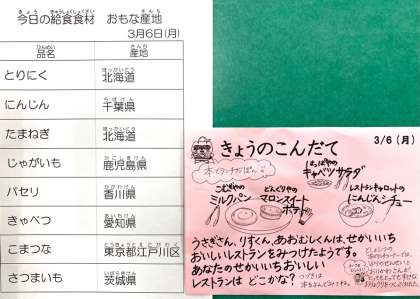 今日の給食食材　おもな産地
3月6日(月)
品名　産地
とりにく　北海道
にんじん　千葉県
たまねぎ　北海道
じゃがいも　鹿児島県
パセリ　香川県
きゃべつ　愛知県
こまつな　東京都江戸川区
さつまいも　茨城県
3/6 (月)
きょうのこんだて
はらぺこの
キャベツサラダ
こむぎやの
ミルクパン
どんぐりやの
マロンスイート
ポテト
レストランキャロットの
にんじんシチュー
うさぎさん、りすくん、あおむしくんは、せかいいち
おいしいレストランをみつけたようです。
あなたのせかいいちおいしい
レストランは どこかな?